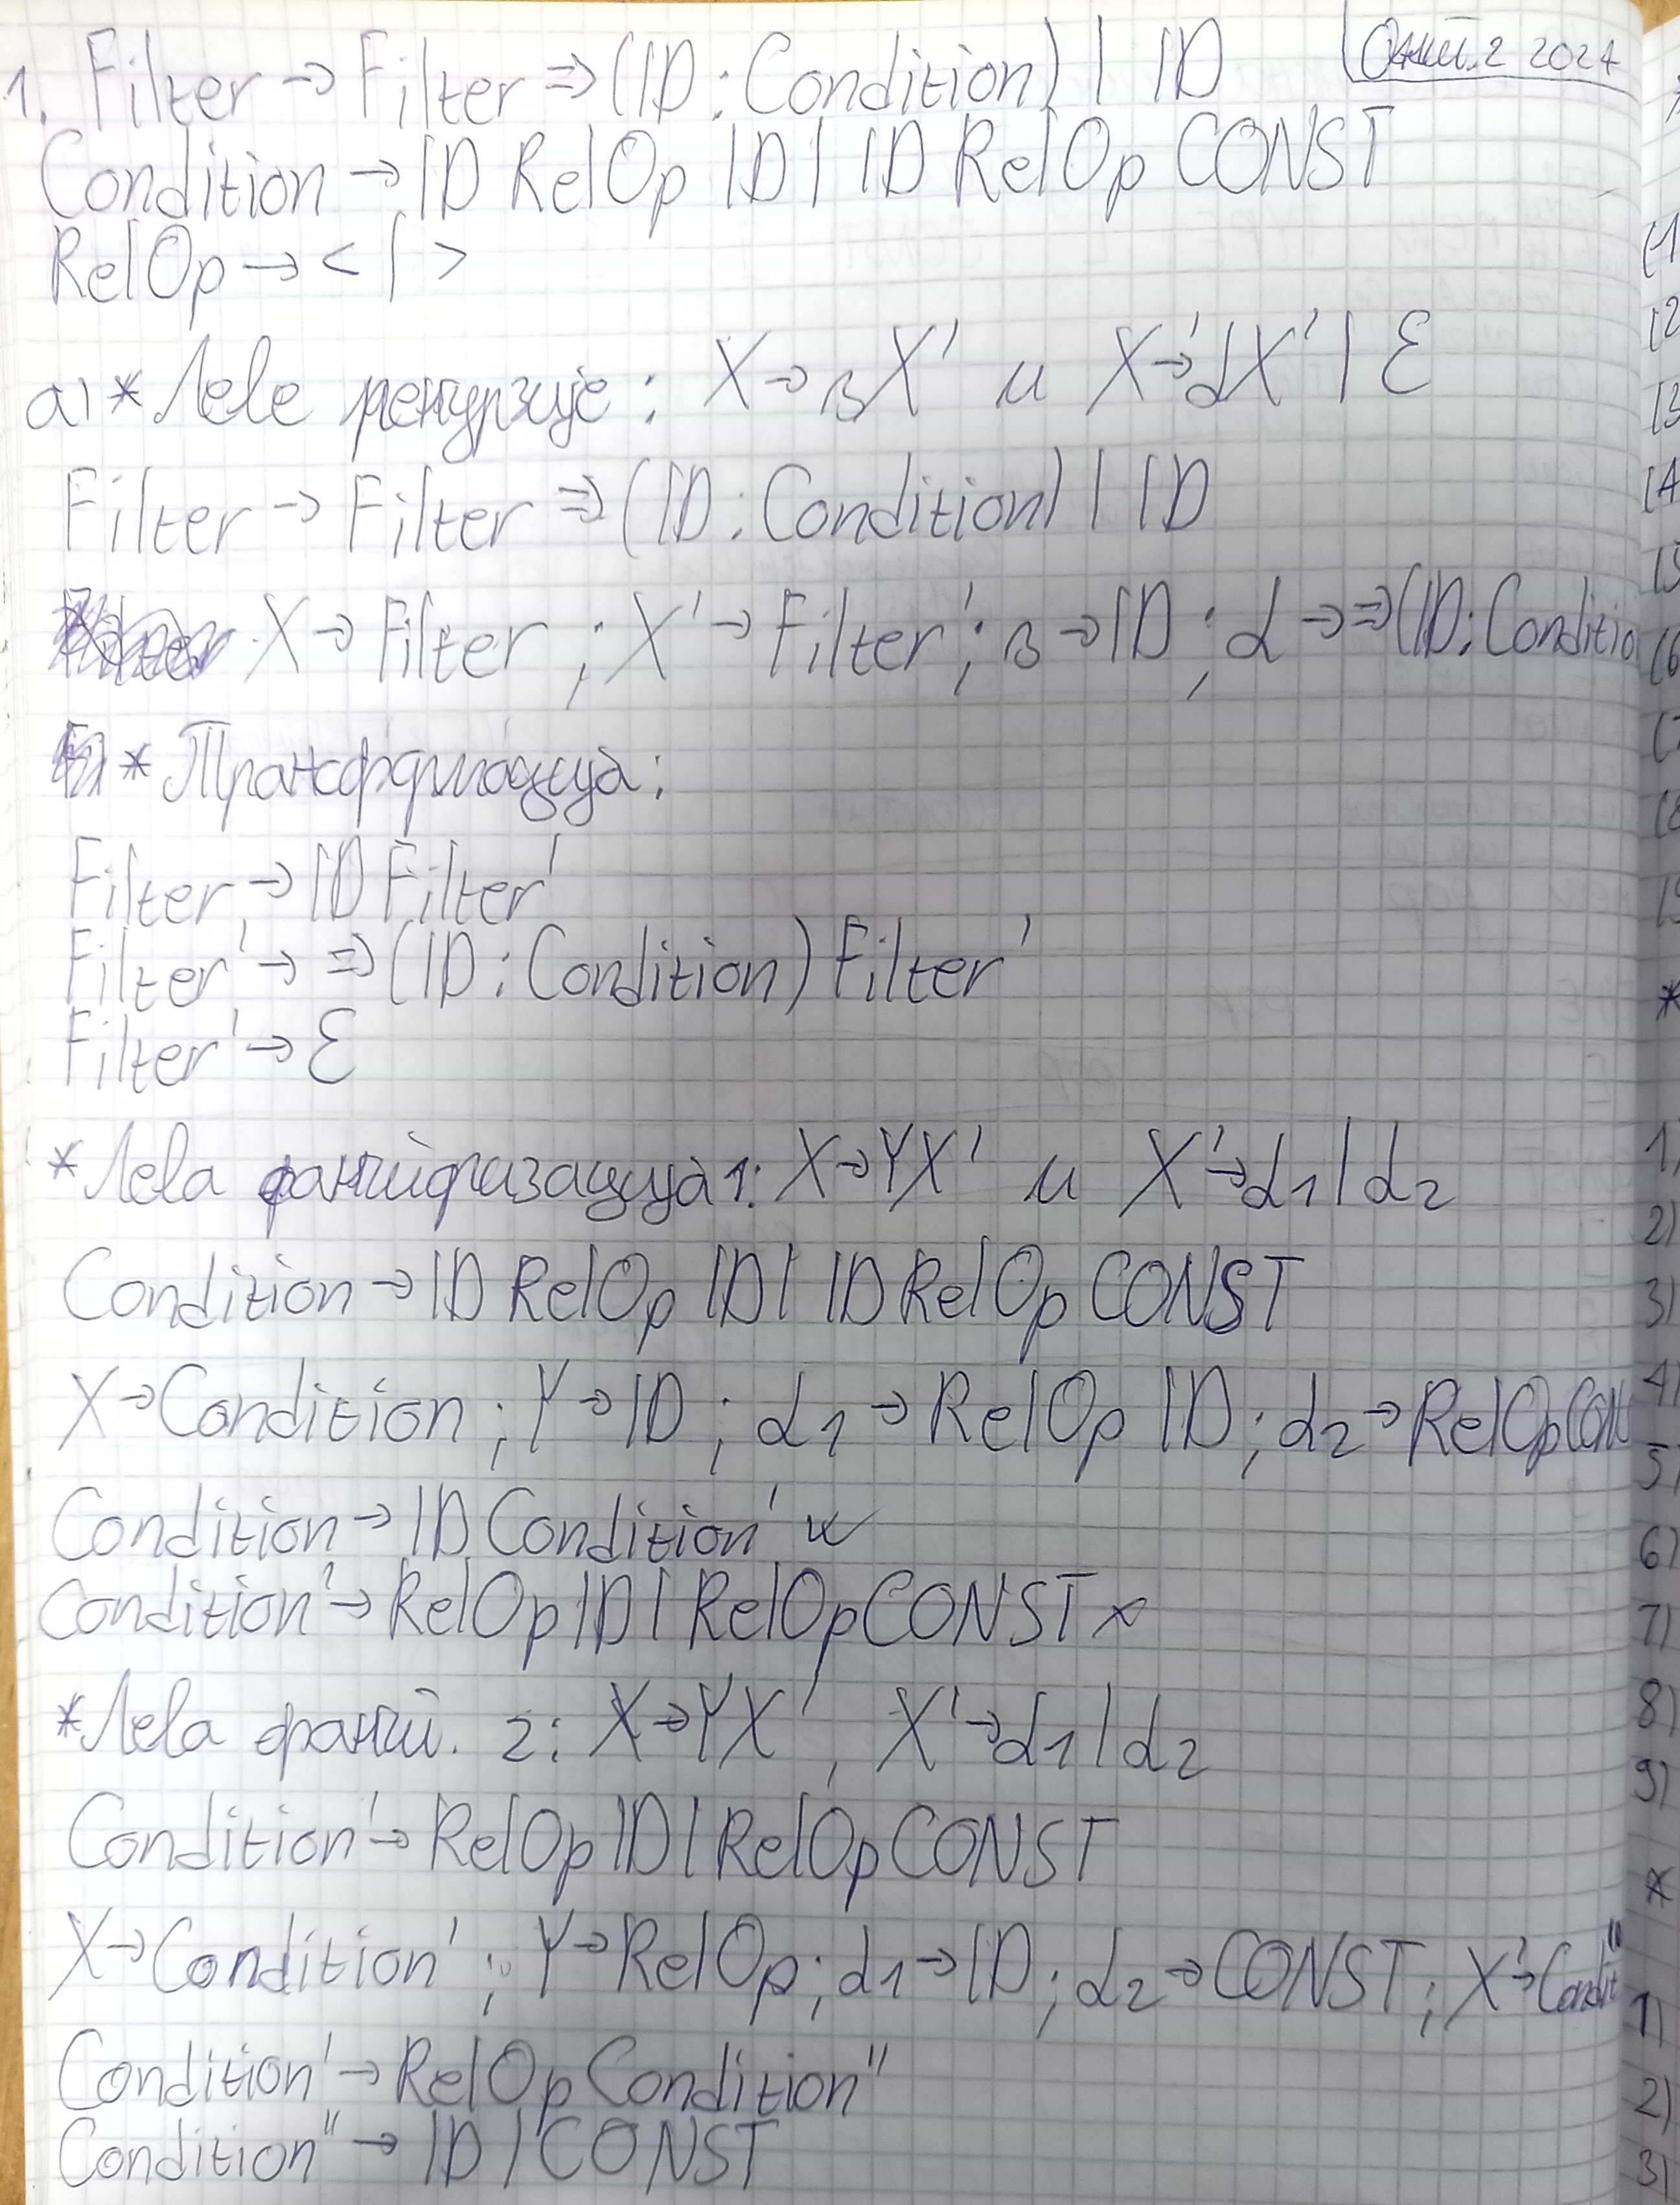 Окт. 2 2024
1. Filter → Filter ⇒ (ID : Condition) | ID
Condition → ID RelOp ID | ID RelOp CONST
RelOp → < | >
a) * Леве рекурзије : X → βX' и X' → αX' | ε
Filter → Filter ⇒ (ID : Condition) | ID
X → Filter ; X' → Filter' ; β → ID ; α → ⇒ (ID : Conditio
* Трансформација :
Filter → ID Filter'
Filter' → ⇒ (ID : Condition) Filter'
Filter' → ε
* Лева факторизација 1: X → YX' и X' → α1 | α2
Condition → ID RelOp ID | ID RelOp CONST
X → Condition ; Y → ID ; α1 → RelOp ID ; α2 → RelOp CON
Condition → ID Condition' ✓
Condition' → RelOp ID | RelOp CONST x
* Лева факт. 2: X → YX' , X' → α1 | α2
Condition' → RelOp ID | RelOp CONST
X → Condition' ; Y → RelOp ; α1 → ID ; α2 → CONST ; X' → Condit''
Condition' → RelOp Condition''
Condition'' → ID | CONST